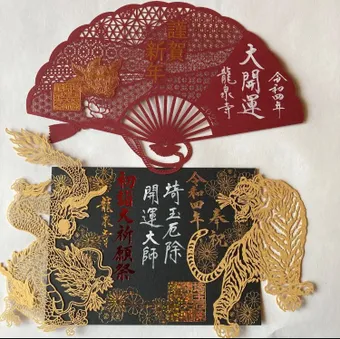 謹賀
新年
大開運
令和四年
龍泉寺
奉祝
令和四年
埼玉厄除
開運大師
初詣大祈願祭
龍泉寺